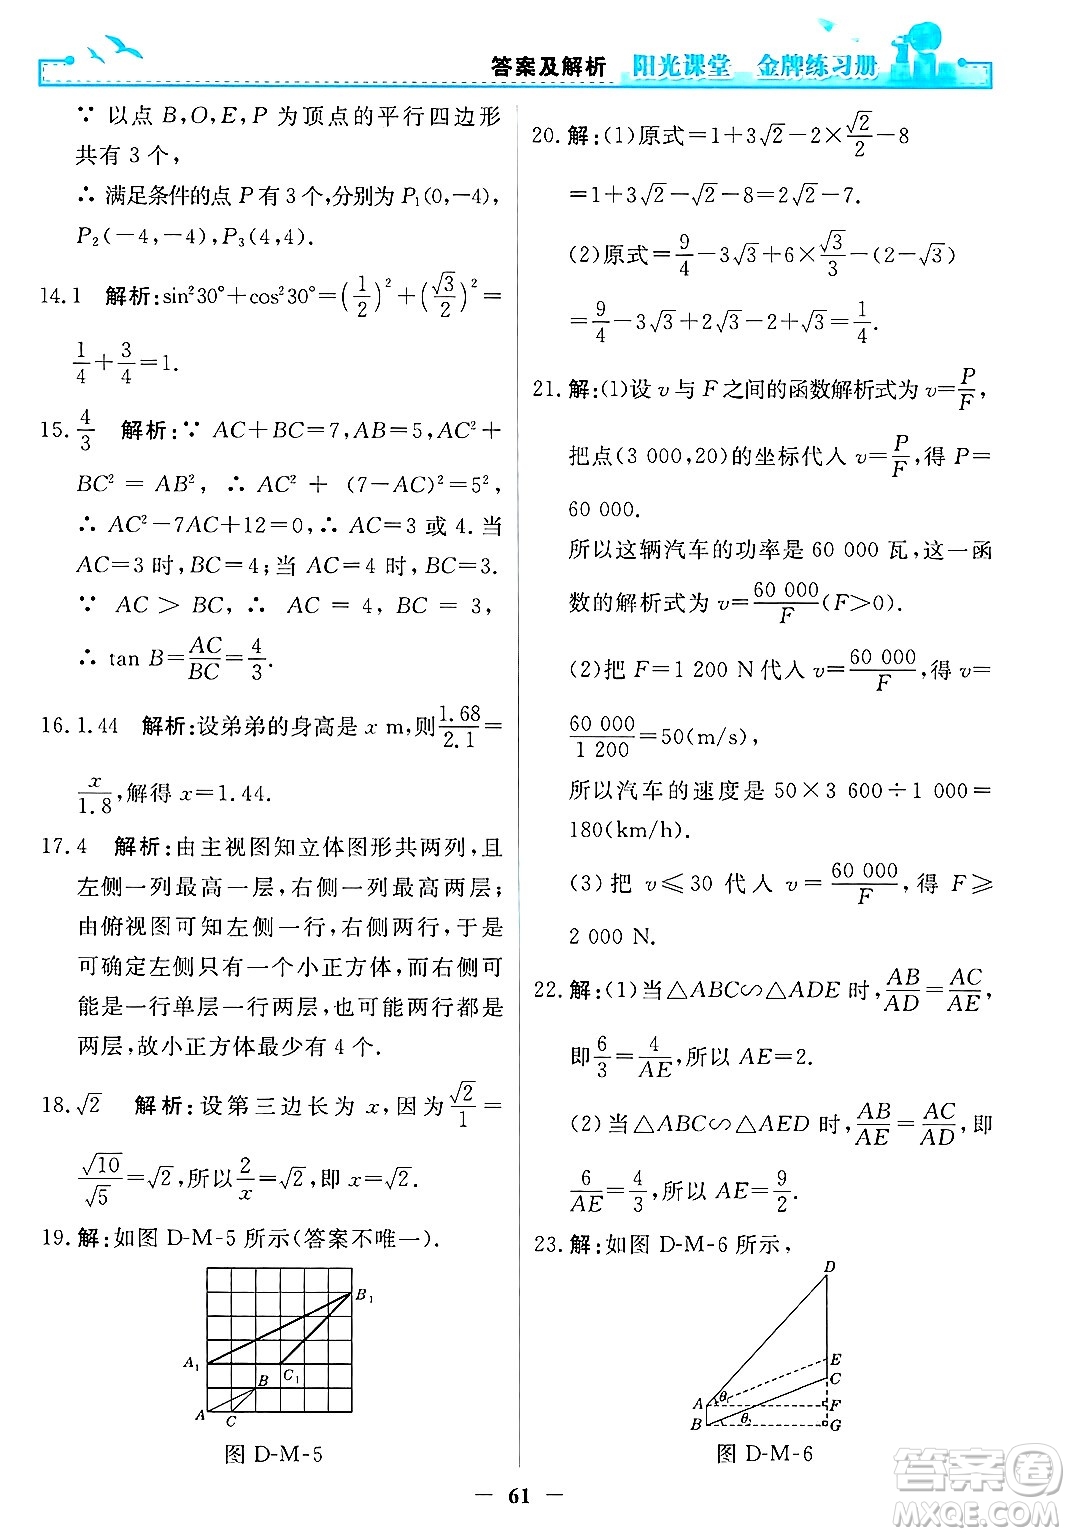 答案及解析 阳光课堂 金牌练习册
∵ 以点 B,O,E,P 为顶点的平行四边形
共有 3 个,
∴ 满足条件的点 P 有 3 个,分别为 P₁(0,−4),
P₂(−4,−4),P₃(4,4).
14.1 解析:sin²30°+cos²30°=(1/2)²+(√3/2)²=
1/4+3/4=1.
15.4/3 解析:∵ AC+BC=7,AB=5,AC²+
BC²=AB²,∴ AC²+(7−AC)²=5²,
∴ AC²−7AC+12=0,∴ AC=3 或 4.当
AC=3 时,BC=4;当 AC=4 时,BC=3.
∵ AC>BC,∴ AC=4,BC=3,
∴ tan B=AC/BC=4/3.
16.1.44 解析:设弟弟的身高是 x m,则1.68/2.1=
x/1.8,解得 x=1.44.
17.4 解析:由主视图知立体图形共两列,且
左侧一列最高一层,右侧一列最高两层;
由俯视图可知左侧一行,右侧两行,于是
可确定左侧只有一个小正方体,而右侧可
能是一行单层一行两层,也可能两行都是
两层,故小正方体最少有 4 个.
18.√2 解析:设第三边长为 x,因为√2/1=
√10/√5=√2,所以2/x=√2,即 x=√2.
19.解:如图 D-M-5 所示(答案不唯一).
B₁
A₁
C₁
B
A
C
图 D-M-5
20.解:(1)原式=1+3√2−2×√2/2−8
=1+3√2−√2−8=2√2−7.
(2)原式=9/4−3√3+6×√3/3−(2−√3)
=9/4−3√3+2√3−2+√3=1/4.
21.解:(1)设 v 与 F 之间的函数解析式为 v=P/F,
把点(3 000,20)的坐标代人 v=P/F,得 P=
60 000.
所以这辆汽车的功率是 60 000 瓦,这一函
数的解析式为 v=60 000/F(F>0).
(2)把 F=1 200 N代人 v=60 000/F,得 v=
60 000/1 200=50(m/s),
所以汽车的速度是 50×3 600÷1 000=
180(km/h).
(3)把 v≤30 代人 v=60 000/F,得 F≥
2 000 N.
22.解:(1)当△ABC∽△ADE 时,AB/AD=AC/AE,
即6/3=4/AE,所以 AE=2.
(2)当△ABC∽△AED 时,AB/AE=AC/AD,即
6/AE=4/3,所以 AE=9/2.
23.解:如图 D-M-6 所示,
D
E
C
A
θ₁
F
B
θ₂
G
图 D-M-6
— 61 —
答案圈
MXQE.COM